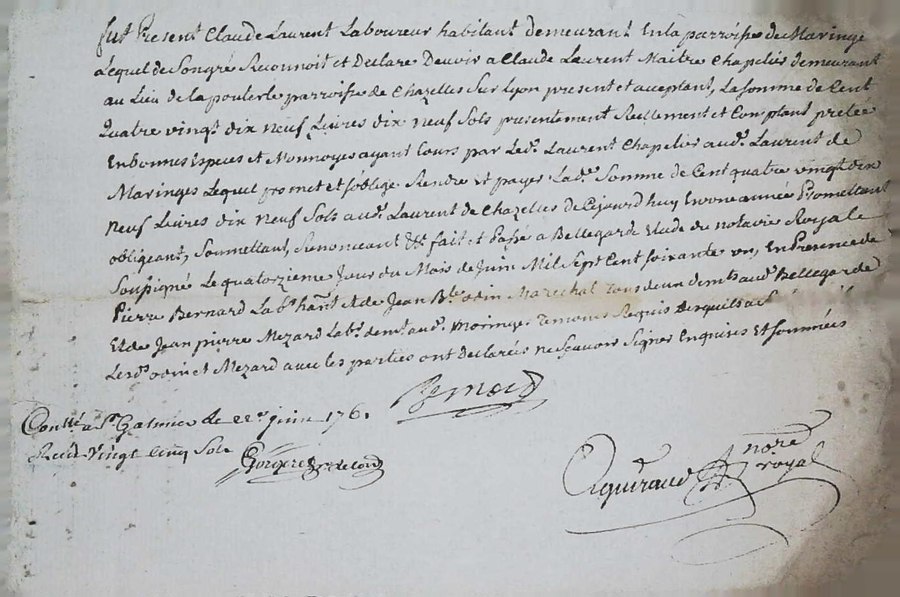 fut Present Claude Laurent Laboureur habitant demeurant En la parroisse de Maringe
Lequel de Son gré Reconnoit et Declare Devoir a Claude Laurent Maitre Chapelier demeurant
au Lieu de la pouterle parroisse de Chazelles Sur Lyon present et acceptant, La somme de Cent
Quatre vingt dix neuf Livres dix neuf Sols presentement Reellement et Comptant pretée
En bonnes Especes et Monnoyes ayant Cours par Led. Laurent Chapelier aud. Laurent de
Maringes Lequel promet et s'oblige Rendre et payer Lad. Somme de Cent quatre vingt dix
neuf Livres dix neuf Sols aud. Laurent de Chazelles De Cejourd huy En une année Promettant
obligeant, Soumettant, Renonceant fait et Passé a Bellegarde Etude du notaire Royale
Soussigné Le quatorzieme Jour du Mois de Juin Mil Sept Cent soixante un, En Presence de
Pierre Bernard Lab. hant. et de Jean Bte. odin Marechal Tous deux dem. aud. Bellegarde
Et de Jean pierre Mezard Lab. demt. aud. Maringe Temoins Requis
Lesd. odin et Mezard avec les parties ont Declarées ne Scavoir Signer Enquises Et Sommées
Bernard
Conllé a St. Galmier Le 22e juin 176
Recu Vingt Cinq Sols
Aguiraud nore. royal